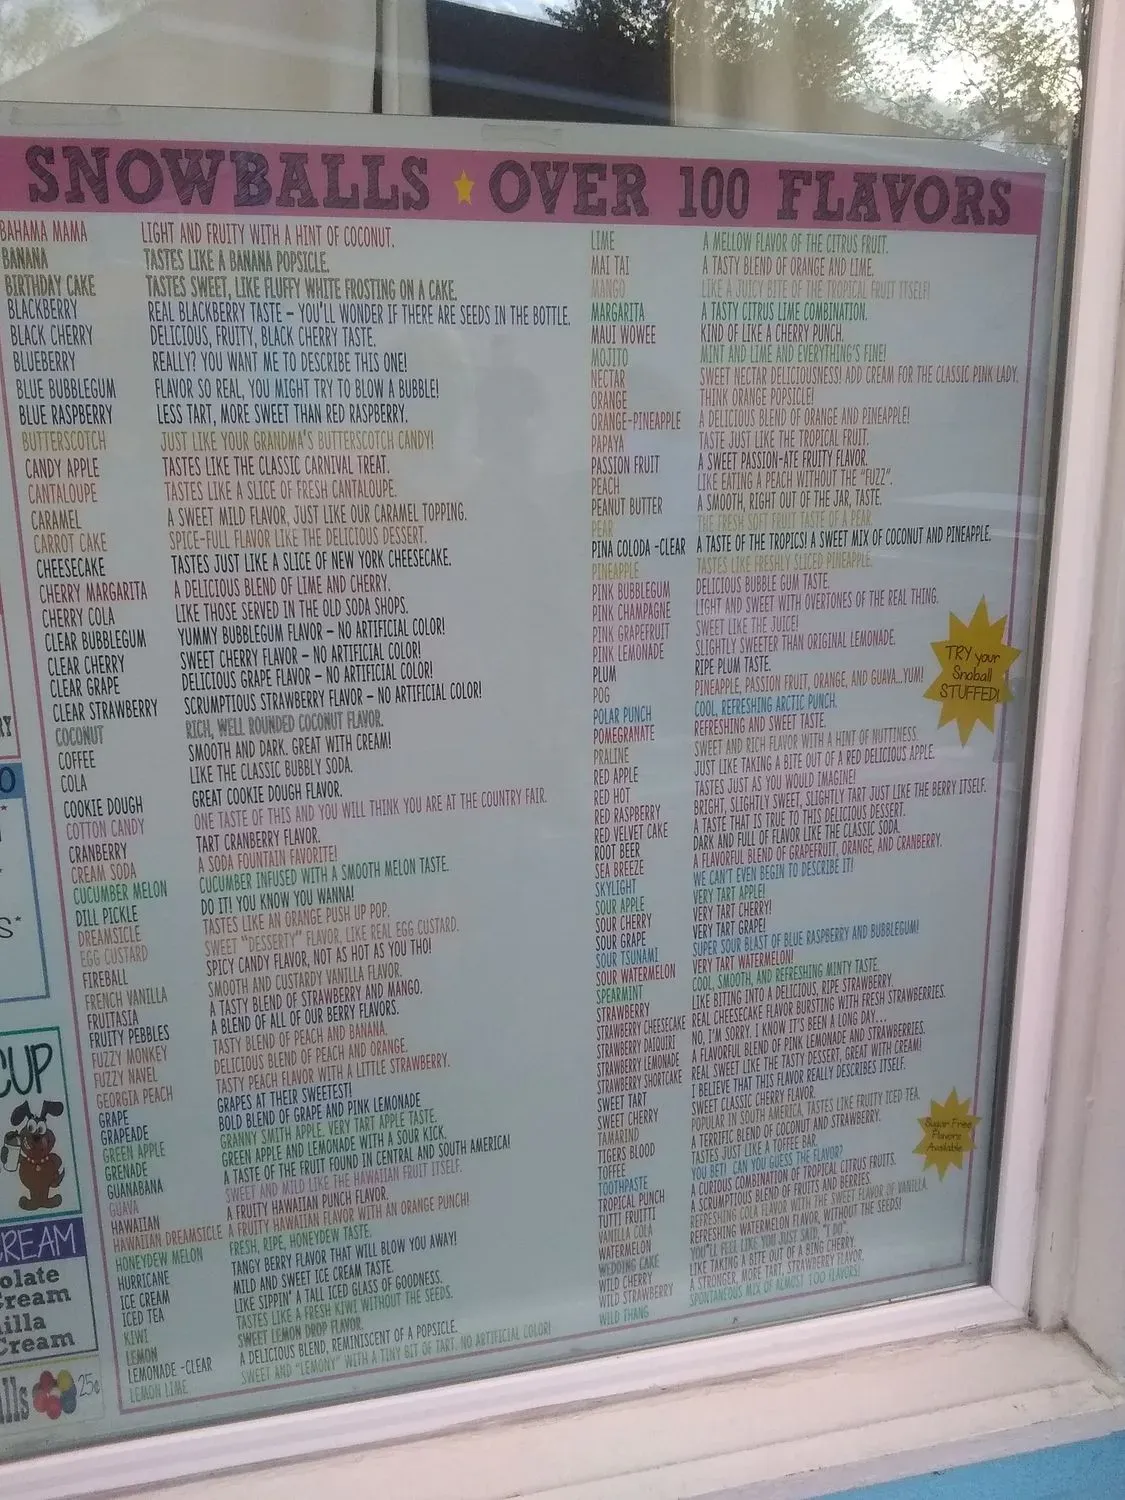 SNOWBALLS ★ OVER 100 FLAVORS
BAHAMA MAMA LIGHT AND FRUITY WITH A HINT OF COCONUT.
BANANA TASTES LIKE A BANANA POPSICLE.
BIRTHDAY CAKE TASTES SWEET, LIKE FLUFFY WHITE FROSTING ON A CAKE.
BLACKBERRY REAL BLACKBERRY TASTE – YOU'LL WONDER IF THERE ARE SEEDS IN THE BOTTLE.
BLACK CHERRY DELICIOUS, FRUITY, BLACK CHERRY TASTE.
BLUEBERRY REALLY? YOU WANT ME TO DESCRIBE THIS ONE!
BLUE BUBBLEGUM FLAVOR SO REAL, YOU MIGHT TRY TO BLOW A BUBBLE!
BLUE RASPBERRY LESS TART, MORE SWEET THAN RED RASPBERRY.
BUTTERSCOTCH JUST LIKE YOUR GRANDMA'S BUTTERSCOTCH CANDY!
CANDY APPLE TASTES LIKE THE CLASSIC CARNIVAL TREAT.
CANTALOUPE TASTES LIKE A SLICE OF FRESH CANTALOUPE.
CARAMEL A SWEET MILD FLAVOR, JUST LIKE OUR CARAMEL TOPPING.
CARROT CAKE SPICE-FULL FLAVOR LIKE THE DELICIOUS DESSERT.
CHEESECAKE TASTES JUST LIKE A SLICE OF NEW YORK CHEESECAKE.
CHERRY MARGARITA A DELICIOUS BLEND OF LIME AND CHERRY.
CHERRY COLA LIKE THOSE SERVED IN THE OLD SODA SHOPS.
CLEAR BUBBLEGUM YUMMY BUBBLEGUM FLAVOR – NO ARTIFICIAL COLOR!
CLEAR CHERRY SWEET CHERRY FLAVOR – NO ARTIFICIAL COLOR!
CLEAR GRAPE DELICIOUS GRAPE FLAVOR – NO ARTIFICIAL COLOR!
CLEAR STRAWBERRY SCRUMPTIOUS STRAWBERRY FLAVOR – NO ARTIFICIAL COLOR!
COCONUT RICH, WELL ROUNDED COCONUT FLAVOR.
COFFEE SMOOTH AND DARK. GREAT WITH CREAM!
COLA LIKE THE CLASSIC BUBBLY SODA.
COOKIE DOUGH GREAT COOKIE DOUGH FLAVOR.
COTTON CANDY ONE TASTE OF THIS AND YOU WILL THINK YOU ARE AT THE COUNTRY FAIR.
CRANBERRY TART CRANBERRY FLAVOR.
CREAM SODA A SODA FOUNTAIN FAVORITE!
CUCUMBER MELON CUCUMBER INFUSED WITH A SMOOTH MELON TASTE.
DILL PICKLE DO IT! YOU KNOW YOU WANNA!
DREAMSICLE TASTES LIKE AN ORANGE PUSH UP POP.
EGG CUSTARD SWEET "DESSERTY" FLAVOR, LIKE REAL EGG CUSTARD.
FIREBALL SPICY CANDY FLAVOR, NOT AS HOT AS YOU THO!
FRENCH VANILLA SMOOTH AND CUSTARDY VANILLA FLAVOR.
FRUITASIA A TASTY BLEND OF STRAWBERRY AND MANGO.
FRUITY PEBBLES A BLEND OF ALL OF OUR BERRY FLAVORS.
FUZZY MONKEY TASTY BLEND OF PEACH AND BANANA.
FUZZY NAVEL DELICIOUS BLEND OF PEACH AND ORANGE.
GEORGIA PEACH TASTY PEACH FLAVOR WITH A LITTLE STRAWBERRY.
GRAPE GRAPES AT THEIR SWEETEST!
GRAPEADE BOLD BLEND OF GRAPE AND PINK LEMONADE
GREEN APPLE GRANNY SMITH APPLE, VERY TART APPLE TASTE.
GRENADE GREEN APPLE AND LEMONADE WITH A SOUR KICK.
GUANABANA A TASTE OF THE FRUIT FOUND IN CENTRAL AND SOUTH AMERICA!
GUAVA SWEET AND MILD LIKE THE HAWAIIAN FRUIT ITSELF.
HAWAIIAN A FRUITY HAWAIIAN PUNCH FLAVOR.
HAWAIIAN DREAMSICLE A FRUITY HAWAIIAN FLAVOR WITH AN ORANGE PUNCH!
HONEYDEW MELON FRESH, RIPE, HONEYDEW TASTE.
HURRICANE TANGY BERRY FLAVOR THAT WILL BLOW YOU AWAY!
ICE CREAM MILD AND SWEET ICE CREAM TASTE.
ICED TEA LIKE SIPPIN' A TALL ICED GLASS OF GOODNESS.
KIWI TASTES LIKE A FRESH KIWI WITHOUT THE SEEDS.
LEMON SWEET LEMON DROP FLAVOR.
LEMONADE -CLEAR A DELICIOUS BLEND, REMINISCENT OF A POPSICLE.
LEMON LIME SWEET AND "LEMONY" WITH A TINY BIT OF TART. NO ARTIFICIAL COLOR!
LIME A MELLOW FLAVOR OF THE CITRUS FRUIT.
MAI TAI A TASTY BLEND OF ORANGE AND LIME.
MANGO LIKE A JUICY BITE OF THE TROPICAL FRUIT ITSELF!
MARGARITA A TASTY CITRUS LIME COMBINATION.
MAUI WOWEE KIND OF LIKE A CHERRY PUNCH.
MOJITO MINT AND LIME AND EVERYTHING'S FINE!
NECTAR SWEET NECTAR DELICIOUSNESS! ADD CREAM FOR THE CLASSIC PINK LADY.
ORANGE THINK ORANGE POPSICLE!
ORANGE-PINEAPPLE A DELICIOUS BLEND OF ORANGE AND PINEAPPLE!
PAPAYA TASTE JUST LIKE THE TROPICAL FRUIT.
PASSION FRUIT A SWEET PASSION-ATE FRUITY FLAVOR.
PEACH LIKE EATING A PEACH WITHOUT THE "FUZZ".
PEANUT BUTTER A SMOOTH, RIGHT OUT OF THE JAR, TASTE.
PEAR THE FRESH SOFT FRUIT TASTE OF A PEAR.
PINA COLODA -CLEAR A TASTE OF THE TROPICS! A SWEET MIX OF COCONUT AND PINEAPPLE.
PINEAPPLE TASTES LIKE FRESHLY SLICED PINEAPPLE.
PINK BUBBLEGUM DELICIOUS BUBBLE GUM TASTE.
PINK CHAMPAGNE LIGHT AND SWEET WITH OVERTONES OF THE REAL THING.
PINK GRAPEFRUIT SWEET LIKE THE JUICE!
PINK LEMONADE SLIGHTLY SWEETER THAN ORIGINAL LEMONADE.
PLUM RIPE PLUM TASTE.
POG PINEAPPLE, PASSION FRUIT, ORANGE, AND GUAVA...YUM!
POLAR PUNCH COOL, REFRESHING ARCTIC PUNCH.
POMEGRANATE REFRESHING AND SWEET TASTE.
PRALINE SWEET AND RICH FLAVOR WITH A HINT OF NUTTINESS.
RED APPLE JUST LIKE TAKING A BITE OUT OF A RED DELICIOUS APPLE.
RED HOT TASTES JUST AS YOU WOULD IMAGINE!
RED RASPBERRY BRIGHT, SLIGHTLY SWEET, SLIGHTLY TART JUST LIKE THE BERRY ITSELF.
RED VELVET CAKE A TASTE THAT IS TRUE TO THIS DELICIOUS DESSERT.
ROOT BEER DARK AND FULL OF FLAVOR LIKE THE CLASSIC SODA.
SEA BREEZE A FLAVORFUL BLEND OF GRAPEFRUIT, ORANGE, AND CRANBERRY.
SKYLIGHT WE CAN'T EVEN BEGIN TO DESCRIBE IT!
SOUR APPLE VERY TART APPLE!
SOUR CHERRY VERY TART CHERRY!
SOUR GRAPE VERY TART GRAPE!
SOUR TSUNAMI SUPER SOUR BLAST OF BLUE RASPBERRY AND BUBBLEGUM!
SOUR WATERMELON VERY TART WATERMELON!
SPEARMINT COOL, SMOOTH, AND REFRESHING MINTY TASTE.
STRAWBERRY LIKE BITING INTO A DELICIOUS, RIPE STRAWBERRY.
STRAWBERRY CHEESECAKE REAL CHEESECAKE FLAVOR BURSTING WITH FRESH STRAWBERRIES.
STRAWBERRY DAIQUIRI NO, I'M SORRY. I KNOW IT'S BEEN A LONG DAY...
STRAWBERRY LEMONADE A FLAVORFUL BLEND OF PINK LEMONADE AND STRAWBERRIES.
STRAWBERRY SHORTCAKE REAL SWEET LIKE THE TASTY DESSERT, GREAT WITH CREAM!
SWEET TART I BELIEVE THAT THIS FLAVOR REALLY DESCRIBES ITSELF.
SWEET CHERRY SWEET CLASSIC CHERRY FLAVOR.
TAMARIND POPULAR IN SOUTH AMERICA, TASTES LIKE FRUITY ICED TEA.
TIGERS BLOOD A TERRIFIC BLEND OF COCONUT AND STRAWBERRY.
TOFFEE TASTES JUST LIKE A TOFFEE BAR.
TOOTHPASTE YOU BET! CAN YOU GUESS THE FLAVOR?
TROPICAL PUNCH A CURIOUS COMBINATION OF TROPICAL CITRUS FRUITS.
TUTTI FRUITTI A SCRUMPTIOUS BLEND OF FRUITS AND BERRIES.
VANILLA COLA REFRESHING COLA FLAVOR WITH THE SWEET FLAVOR OF VANILLA.
WATERMELON REFRESHING WATERMELON FLAVOR, WITHOUT THE SEEDS!
WEDDING CAKE YOU'LL FEEL LIKE YOU JUST SAID, "I DO".
WILD CHERRY LIKE TAKING A BITE OUT OF A BING CHERRY.
WILD STRAWBERRY A STRONGER, MORE TART, STRAWBERRY FLAVOR.
WILD THANG SPONTANEOUS MIX OF ALMOST TOO FLAVORS!
TRY your
Snoball
STUFFED!
Sugar Free
Flavors
Available
CUP
REAM
olate
ream
illa
Cream
lls 25¢